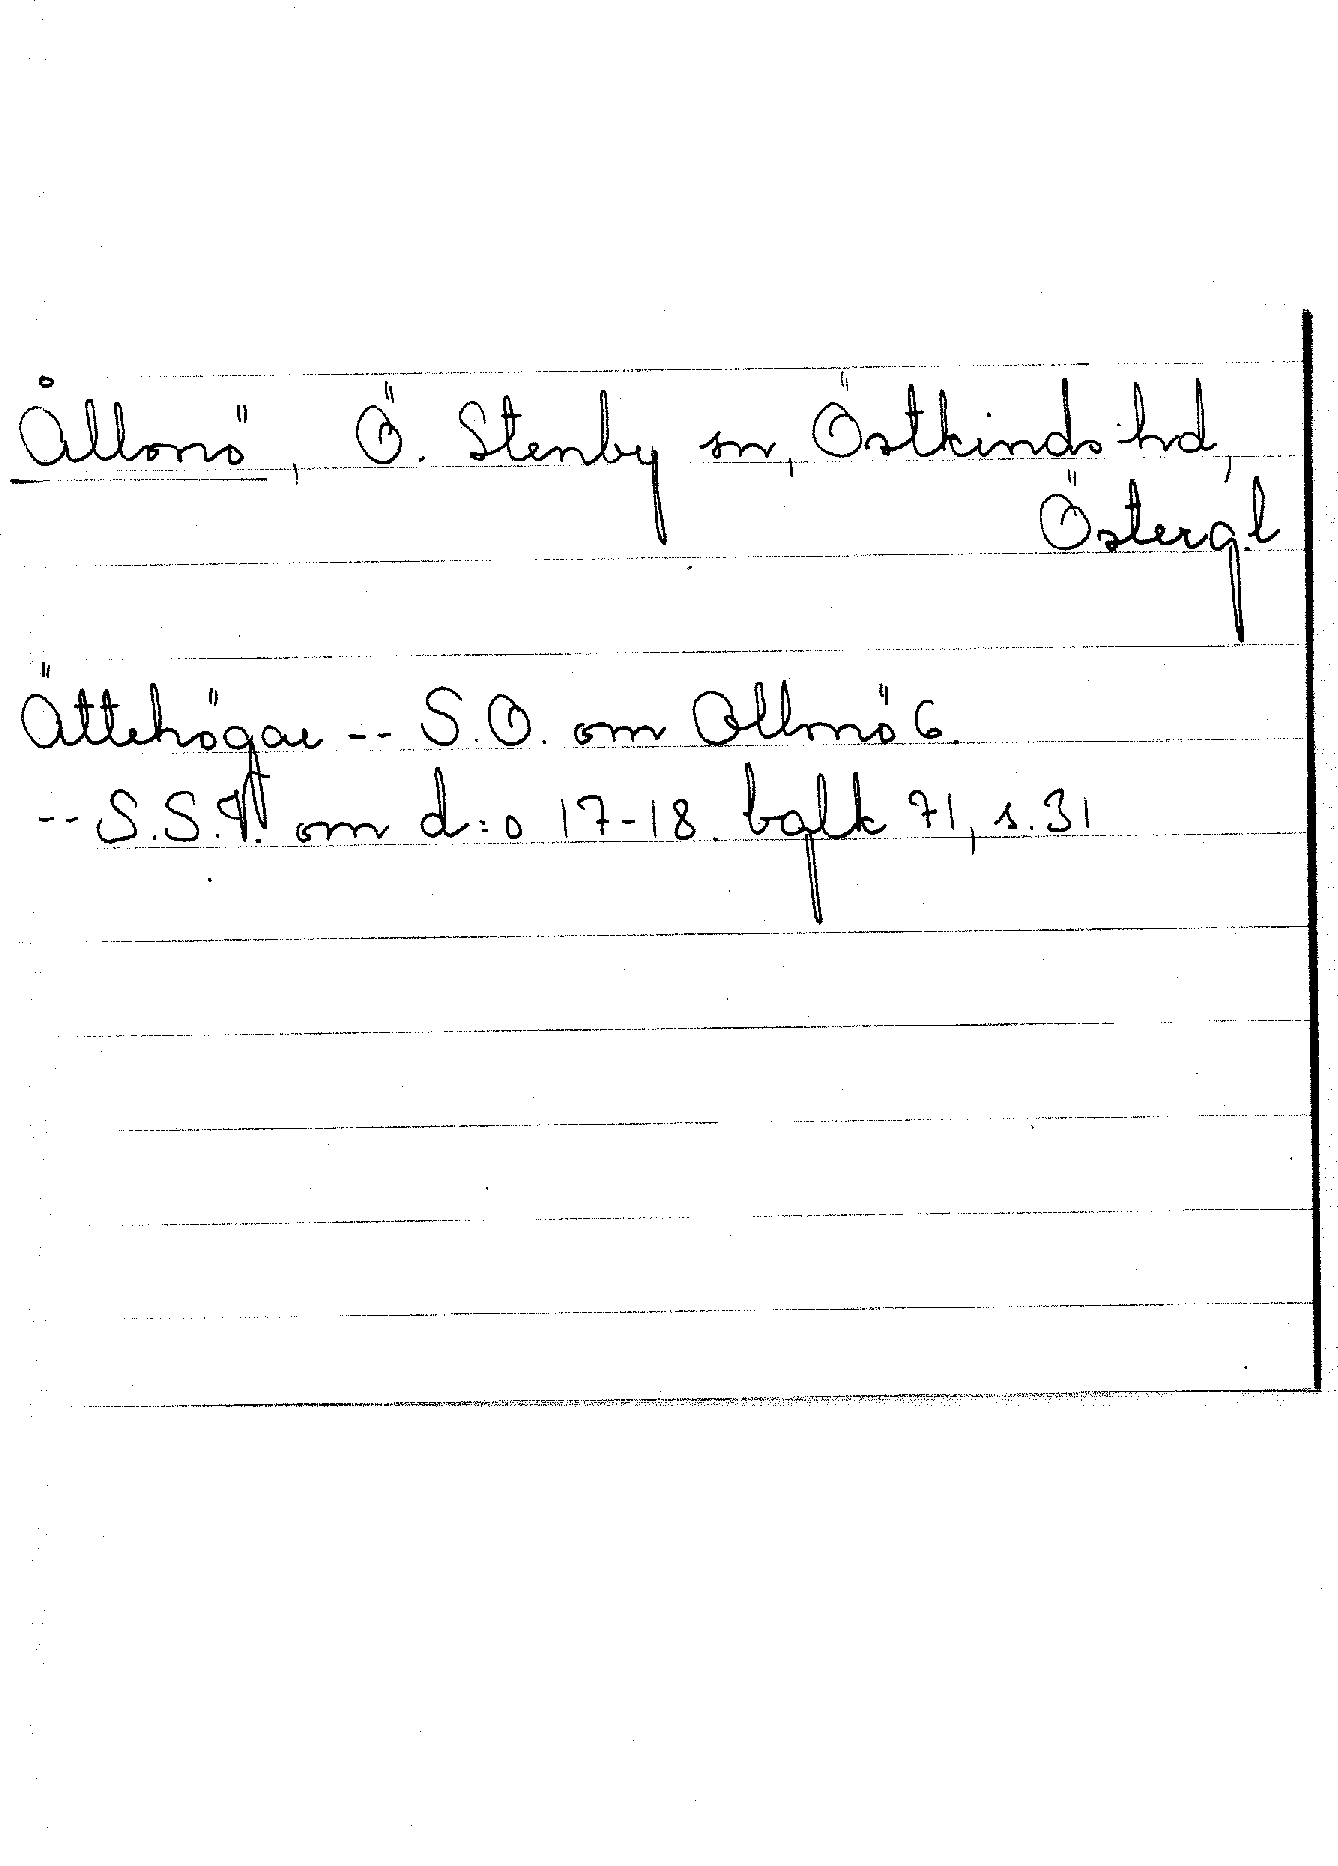 Ållonö, Ö. Stenby sn, Östkinds hd,
Östergl
Ättehögar -- S.O. om Ållonö 6.
-- S.S.V. om d:o 17-18. balk 71, s.31